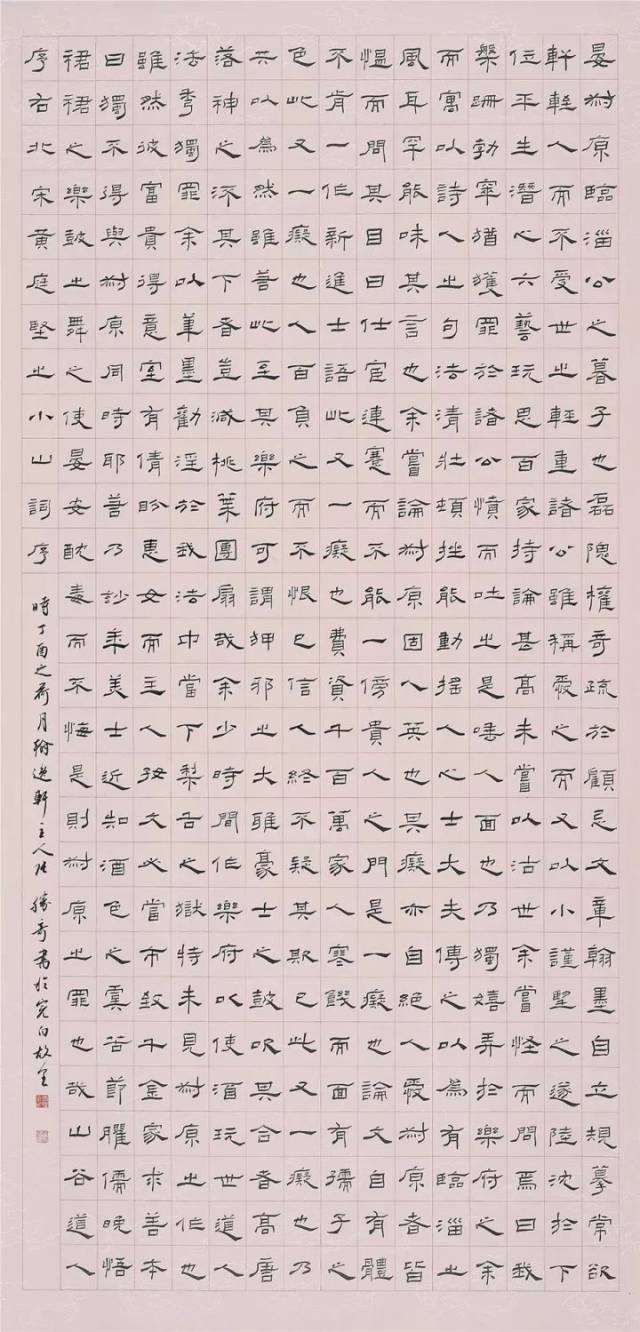 晏叔原臨淄公之暮子也磊隗權奇疏於顧忌文章翰墨自立規摹常欲
軒輊人而不受世之輕重諸公雖稱愛之而又以小謹望之遂陸沈於下
位平生潛心六藝玩思百家持論甚高未嘗以沽世余嘗怪而問焉曰我
槃跚勃窣猶獲罪於諸公憤而吐之是唾人面也乃獨嬉弄於樂府之余
而寓以詩人之句法清壯頓挫能動搖人心士大夫傳之以為有臨淄之
風耳罕能味其言也余嘗論叔原固人英也其癡亦自絕人愛叔原者皆
慍而問其目曰仕宦連蹇而不能一傍貴人之門是一癡也論文自有體
不肯一作新進士語此又一癡也費資千百萬家人寒饑而面有孺子之
色此又一癡也人百負之而不恨己信人終不疑其欺己此又一癡也乃
共以為然雖若此至其樂府可謂狎邪之大雅豪士之鼓吹其合者高唐
落神之流其下者豈減桃葉團扇哉余少時間作樂府以使酒玩世道人
法秀獨罪余以筆墨勸淫於我法中當下犁舌之獄特未見叔原之作也
雖然彼富貴得意室有倩盼惠女而主人好文必當市致千金家求善本
曰獨不得與叔原同時耶若乃妙年美士近知酒色之虞苦節臞儒晚悟
裙裾之樂鼓之舞之使晏安酖毒而不悔是則叔原之罪也哉山谷道人
序右北宋黃庭堅之小山詞序
時丁酉之荷月翰逸軒主人張勝奇書於